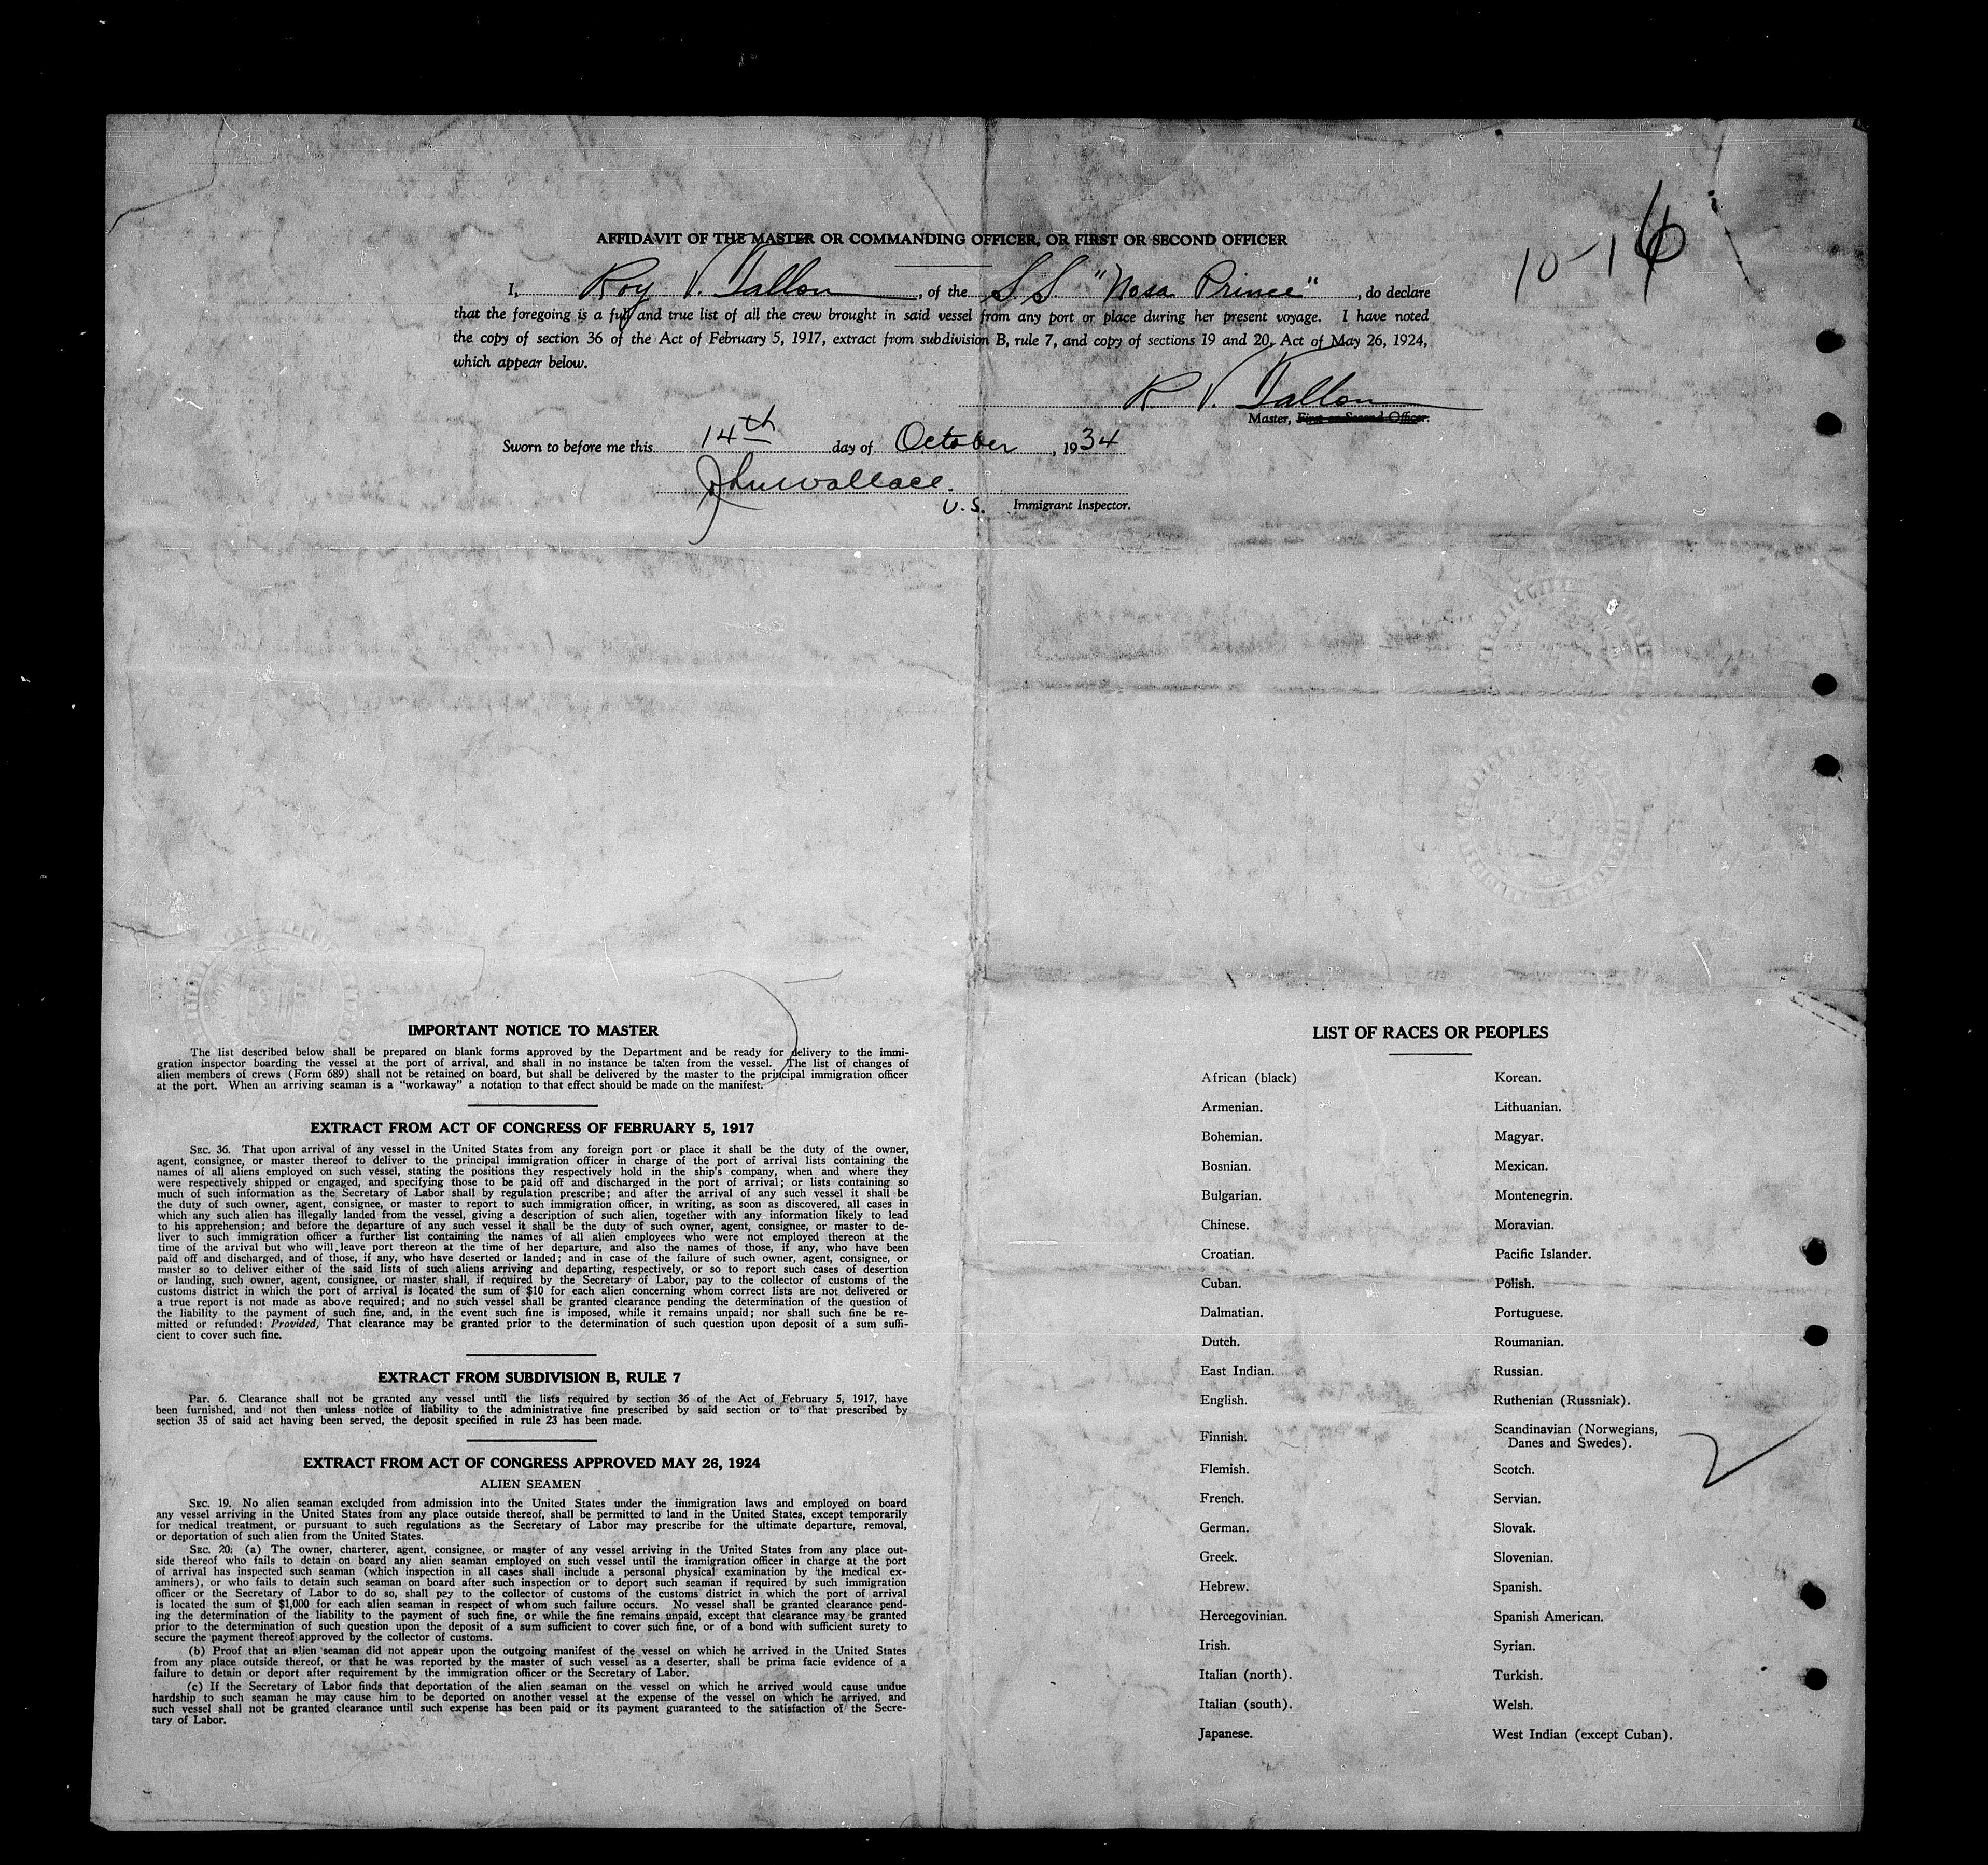 AFFIDAVIT OF THE MASTER OR COMMANDING OFFICER, OR FIRST OR SECOND OFFICER
10-16
I, Roy V. Tallon, of the S.S. "Nosa Prince", do declare
that the foregoing is a full and true list of all the crew brought in said vessel from any port or place during her present voyage. I have noted
the copy of section 36 of the Act of February 5, 1917, extract from subdivision B, rule 7, and copy of sections 19 and 20, Act of May 26, 1924,
which appear below.
R V. Tallon
Master, First or Second Officer.
Sworn to before me this 14th day of October, 1934
Jhnwallace.
U.S. Immigrant Inspector.
IMPORTANT NOTICE TO MASTER
The list described below shall be prepared on blank forms approved by the Department and be ready for delivery to the immi-
gration inspector boarding the vessel at the port of arrival, and shall in no instance be taken from the vessel. The list of changes of
alien members of crews (Form 689) shall not be retained on board, but shall be delivered by the master to the principal immigration officer
at the port. When an arriving seaman is a "workaway" a notation to that effect should be made on the manifest.
EXTRACT FROM ACT OF CONGRESS OF FEBRUARY 5, 1917
SEC. 36. That upon arrival of any vessel in the United States from any foreign port or place it shall be the duty of the owner,
agent, consignee, or master thereof to deliver to the principal immigration officer in charge of the port of arrival lists containing the
names of all aliens employed on such vessel, stating the positions they respectively hold in the ship's company, when and where they
were respectively shipped or engaged, and specifying those to be paid off and discharged in the port of arrival; or lists containing so
much of such information as the Secretary of Labor shall by regulation prescribe; and after the arrival of any such vessel it shall be
the duty of such owner, agent, consignee, or master to report to such immigration officer, in writing, as soon as discovered, all cases in
which any such alien has illegally landed from the vessel, giving a description of such alien, together with any information likely to lead
to his apprehension; and before the departure of any such vessel it shall be the duty of such owner, agent, consignee, or master to de-
liver to such immigration officer a further list containing the names of all alien employees who were not employed thereon at the
time of the arrival but who will leave port thereon at the time of her departure, and also the names of those, if any, who have been
paid off and discharged, and of those, if any, who have deserted or landed; and in case of the failure of such owner, agent, consignee, or
master so to deliver either of the said lists of such aliens arriving and departing, respectively, or so to report such cases of desertion
or landing, such owner, agent, consignee, or master shall, if required by the Secretary of Labor, pay to the collector of customs of the
customs district in which the port of arrival is located the sum of $10 for each alien concerning whom correct lists are not delivered or
a true report is not made as above required; and no such vessel shall be granted clearance pending the determination of the question of
the liability to the payment of such fine, and, in the event such fine is imposed, while it remains unpaid; nor shall such fine be re-
mitted or refunded: Provided, That clearance may be granted prior to the determination of such question upon deposit of a sum suffi-
cient to cover such fine.
EXTRACT FROM SUBDIVISION B, RULE 7
Par. 6. Clearance shall not be granted any vessel until the lists required by section 36 of the Act of February 5, 1917, have
been furnished, and not then unless notice of liability to the administrative fine prescribed by said section or to that prescribed by
section 35 of said act having been served, the deposit specified in rule 23 has been made.
EXTRACT FROM ACT OF CONGRESS APPROVED MAY 26, 1924
ALIEN SEAMEN
SEC. 19. No alien seaman excluded from admission into the United States under the immigration laws and employed on board
any vessel arriving in the United States from any place outside thereof, shall be permitted to land in the United States, except temporarily
for medical treatment, or pursuant to such regulations as the Secretary of Labor may prescribe for the ultimate departure, removal,
or deportation of such alien from the United States.
SEC. 20. (a) The owner, charterer, agent, consignee, or master of any vessel arriving in the United States from any place out-
side thereof who fails to detain on board any alien seaman employed on such vessel until the immigration officer in charge at the port
of arrival has inspected such seaman (which inspection in all cases shall include a personal physical examination by the medical ex-
aminers), or who fails to detain such seaman on board after such inspection or to deport such seaman if required by such immigration
officer or the Secretary of Labor to do so, shall pay to the collector of customs of the customs district in which the port of arrival
is located the sum of $1,000 for each alien seaman in respect of whom such failure occurs. No vessel shall be granted clearance pend-
ing the determination of the liability to the payment of such fine, or while the fine remains unpaid, except that clearance may be granted
prior to the determination of such question upon the deposit of a sum sufficient to cover such fine, or of a bond with sufficient surety to
secure the payment thereof approved by the collector of customs.
(b) Proof that an alien seaman did not appear upon the outgoing manifest of the vessel on which he arrived in the United States
from any place outside thereof, or that he was reported by the master of such vessel as a deserter, shall be prima facie evidence of a
failure to detain or deport after requirement by the immigration officer or the Secretary of Labor.
(c) If the Secretary of Labor finds that deportation of the alien seaman on the vessel on which he arrived would cause undue
hardship to such seaman he may cause him to be deported on another vessel at the expense of the vessel on which he arrived, and
such vessel shall not be granted clearance until such expense has been paid or its payment guaranteed to the satisfaction of the Secre-
tary of Labor.
LIST OF RACES OR PEOPLES
African (black)
Armenian.
Bohemian.
Bosnian.
Bulgarian.
Chinese.
Croatian.
Cuban.
Dalmatian.
Dutch.
East Indian.
English.
Finnish.
Flemish.
French.
German.
Greek.
Hebrew.
Hercegovinian.
Irish.
Italian (north).
Italian (south).
Japanese.
Korean.
Lithuanian.
Magyar.
Mexican.
Montenegrin.
Moravian.
Pacific Islander.
Polish.
Portuguese.
Roumanian.
Russian.
Ruthenian (Russniak).
Scandinavian (Norwegians,
Danes and Swedes).
Scotch.
Servian.
Slovak.
Slovenian.
Spanish.
Spanish American.
Syrian.
Turkish.
Welsh.
West Indian (except Cuban).
2